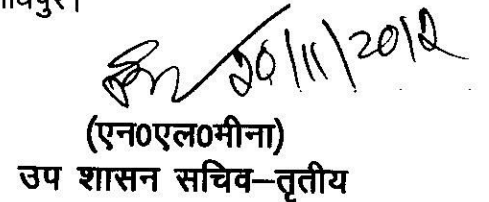 20/11/2012
(एन0एल0मीना)
उप शासन सचिव–तृतीय